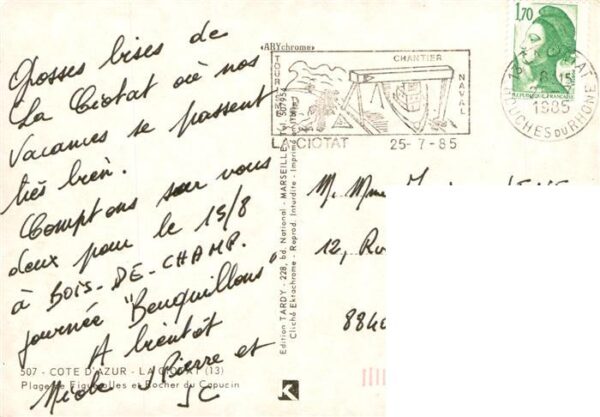 Grosses bises de
La Ciotat où nos
vacances se passent
très bien.
Comptons sur vous
deux pour le 15/8
à BOIS-DE-CHAMP.
journée "Bouquillons"
A bientôt
Pierre et
JC
507 - COTE D'AZUR - LA CIOTAT (13)
Plage de Figuerolles et Rocher du Capucin
«ARYchrome»
TOURISME
CHANTIER
NAVAL
LA CIOTAT 25-7-85
1,70
1985
BOUCHES DU RHONE
Edition TARDY - 228, bd. National - MARSEILLE - Tél. 507954
Cliché Ektachrome - Reprod. Interdite - Imprimé
M. Mme
12, Ru
8840
K